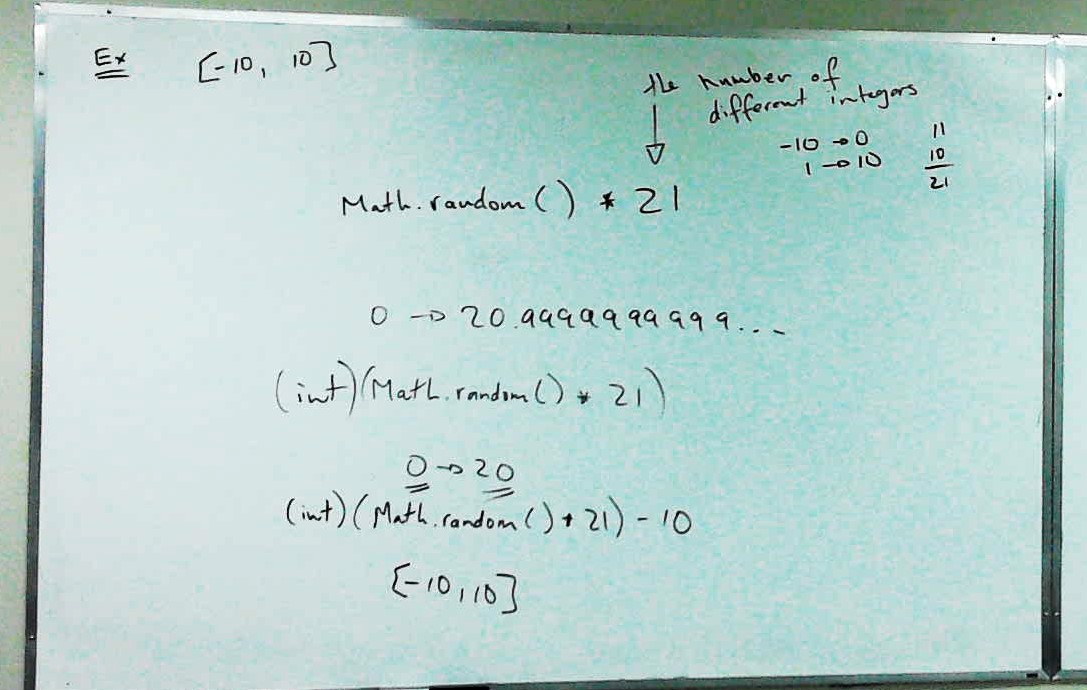 Ex [-10, 10]
the number of
different integers
-10 → 0 11
1 → 10 10
21
Math.random() * 21
0 → 20.9999999999...
(int)(Math.random() * 21)
0 → 20
(int)(Math.random() + 21) - 10
[-10, 10]